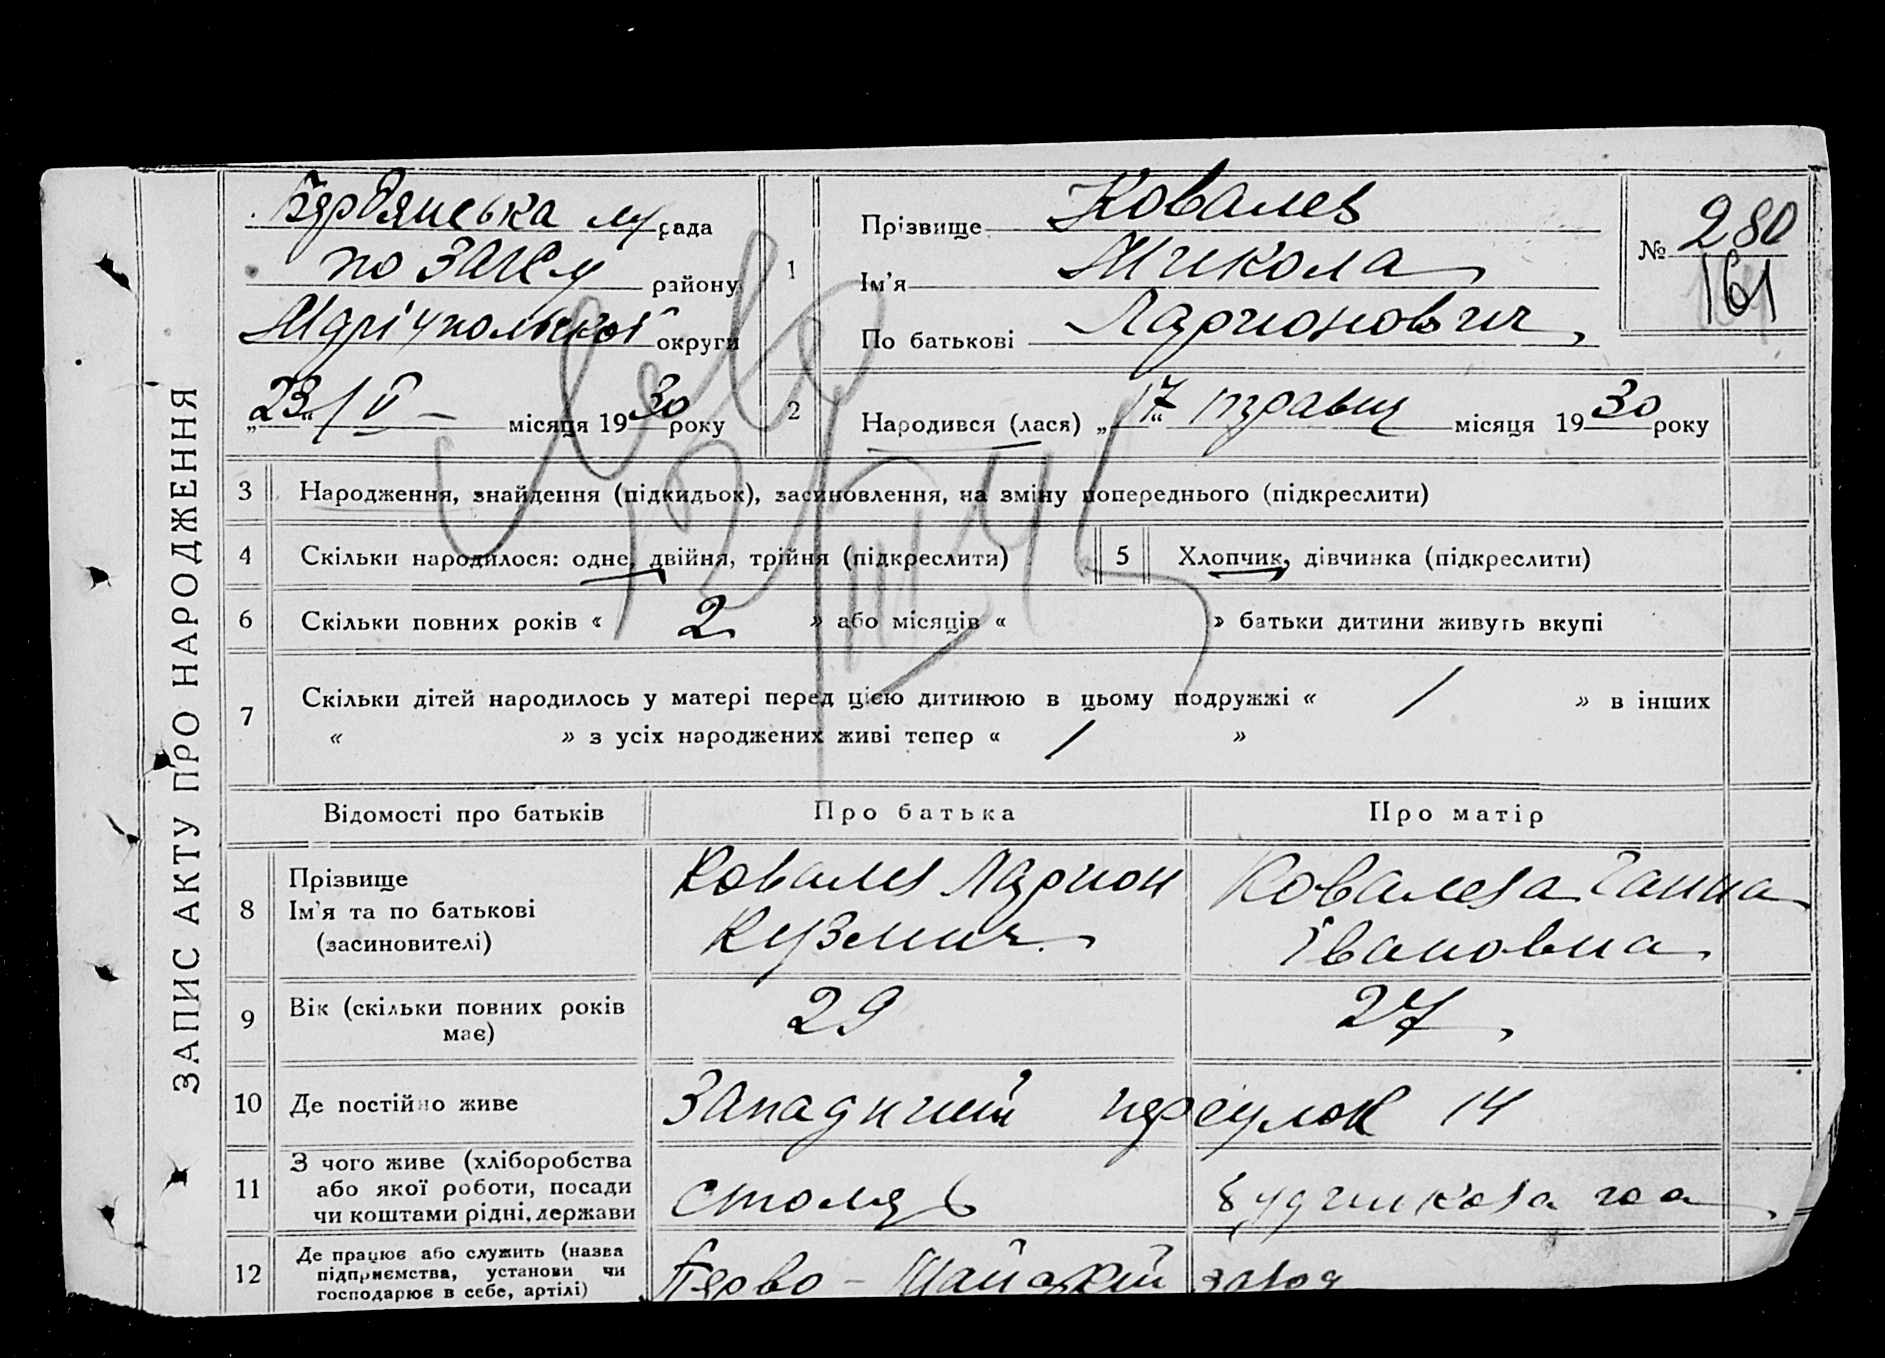 ЗАПИС АКТУ ПРО НАРОДЖЕННЯ
Бердянська м рада
по ЗАНСу району
Маріупольської округи
„23“/V – місяця 1930 року
1
Прізвище Ковалев
Ім’я Микола
По батькові Ларионович
№ 280
161
2
Народився (лася) „17“ травня місяця 1930 року
3 Народження, знайдення (підкидьок), засиновлення, на зміну попереднього (підкреслити)
4 Скільки народилося: одне, двійня, трійня (підкреслити)
5 Хлопчик, дівчинка (підкреслити)
6 Скільки повних років « 2 » або місяців « » батьки дитини живуть вкупі
7 Скільки дітей народилось у матері перед цією дитиною в цьому подружжі « 1 » в інших
« » з усіх народжених живі тепер « 1 »
Відомості про батьків Про батька Про матір
8 Прізвище
Ім’я та по батькові
(засиновителі)
Ковалев Ларион
Кузмич
Ковалева Ганна
Івановна
9 Вік (скільки повних років
має)
29 27
10 Де постійно живе Западний переулок 14
11 З чого живе (хліборобства
або якої роботи, посади
чи коштами рідні, держави
столяр
12 Де працює або служить (назва
підприємства, установи чи
господарює в себе, артілі)
Перво-Майский завод